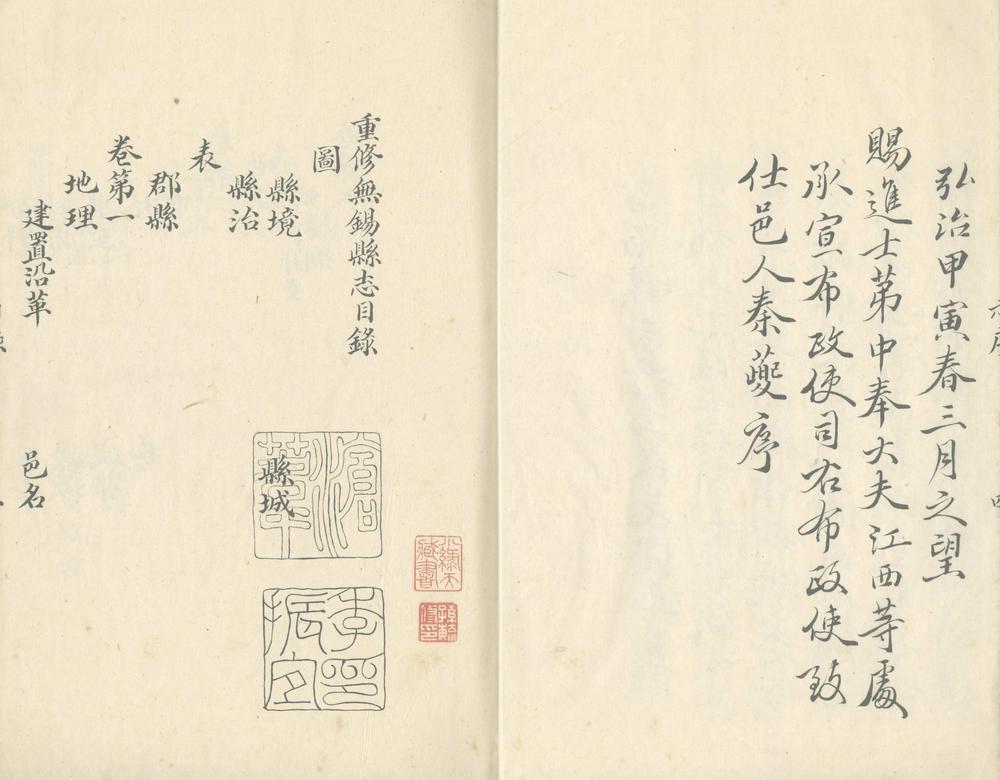 弘治甲寅春三月之望
賜進士第中奉大夫江西等處
承宣布政使司右布政使致
仕邑人秦夔序
重修無錫縣志目錄
圖
縣境
縣城
縣治
表
郡縣
卷第一
地理
建置沿革
邑名
滄葦
季印振宜
藏書